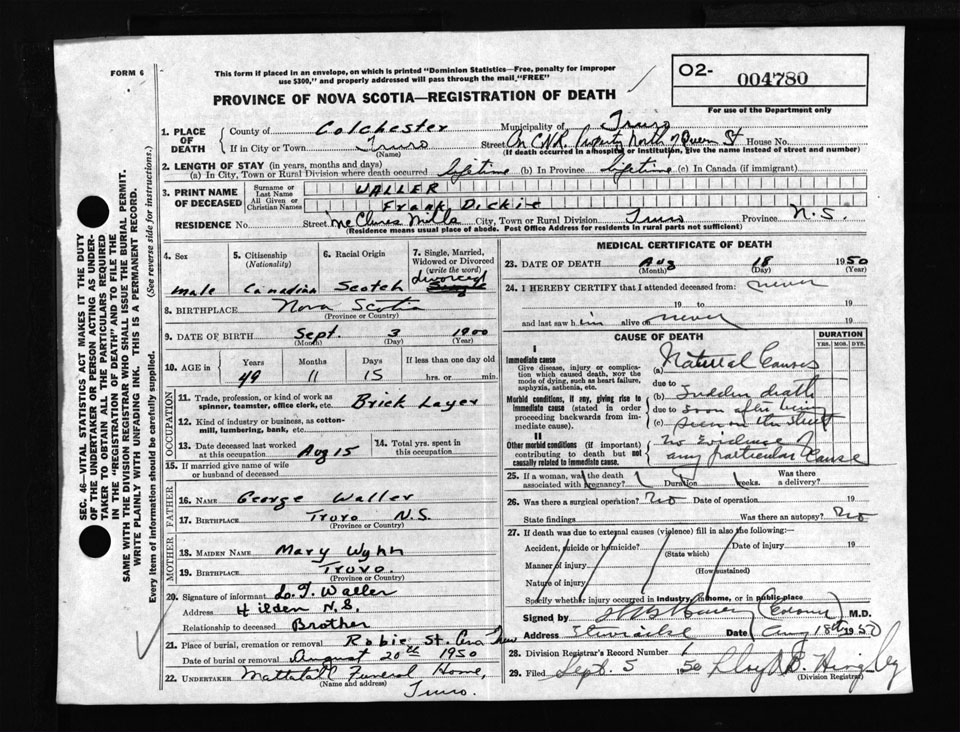 FORM 6
This form if placed in an envelope, on which is printed "Dominion Statistics—Free, penalty for improper
use $300," and properly addressed will pass through the mail "FREE"
O2- 004780
For use of the Department only
PROVINCE OF NOVA SCOTIA—REGISTRATION OF DEATH
SEC. 46—VITAL STATISTICS ACT MAKES IT THE DUTY
OF THE UNDERTAKER OR PERSON ACTING AS UNDER-
TAKER TO OBTAIN ALL THE PARTICULARS REQUIRED
IN THE "REGISTRATION OF DEATH" AND TO FILE THE
SAME WITH THE DIVISION REGISTRAR WHO SHALL ISSUE THE BURIAL PERMIT.
WRITE PLAINLY WITH UNFADING INK. THIS IS A PERMANENT RECORD.
Every item of information should be carefully supplied. (See reverse side for instructions.)
1. PLACE OF DEATH County of Colchester Municipality of Truro
If in City or Town Truro Street On C.N.R. Property North of Queen St House No.
(Name) (If death occurred in a hospital or institution, give the name instead of street and number)
2. LENGTH OF STAY (in years, months and days)
(a) In City, Town or Rural Division where death occurred lifetime (b) In Province lifetime (c) In Canada (if immigrant)
3. PRINT NAME OF DECEASED Surname or Last Name WALLER
All Given or Christian Names Frank Dickie
RESIDENCE No. Street McClures Mills City, Town or Rural Division Truro Province N.S.
(Residence means usual place of abode. Post Office Address for residents in rural parts not sufficient)
4. Sex 5. Citizenship (Nationality) 6. Racial Origin 7. Single, Married, Widowed or Divorced (write the word)
male Canadian Scotch divorced Single
8. BIRTHPLACE Nova Scotia
(Province or Country)
9. DATE OF BIRTH Sept. 3 1900
(Month) (Day) (Year)
10. AGE in Years Months Days If less than one day old
49 11 15 hrs. or min.
OCCUPATION
11. Trade, profession, or kind of work as
spinner, teamster, office clerk, etc. Brick Layer
12. Kind of industry or business, as cotton-
mill, lumbering, bank, etc.
13. Date deceased last worked
at this occupation Aug 15
14. Total yrs. spent in
this occupation
15. If married give name of wife
or husband of deceased
FATHER
16. NAME George Waller
17. BIRTHPLACE Truro N.S.
(Province or Country)
MOTHER
18. MAIDEN NAME Mary Wynn
19. BIRTHPLACE Truro.
(Province or Country)
20. Signature of informant Waller
Address Hilden N.S.
Relationship to deceased Brother
21. Place of burial, cremation or removal Robie St. Truro
Date of burial or removal August 20th 1950
22. UNDERTAKER Mattatall Funeral Home,
(Name and address) Truro.
MEDICAL CERTIFICATE OF DEATH
23. DATE OF DEATH Aug 18 1950
(Month) (Day) (Year)
24. I HEREBY CERTIFY that I attended deceased from: never
19 to 19
and last saw him alive on never 19
CAUSE OF DEATH DURATION
YRS. MOS. DYS.
I
Immediate cause
Give disease, injury or complica-
tion which caused death, NOT the
mode of dying, such as heart failure,
asphyxia, asthenia, etc.
(a) Natural Causes
due to
Morbid conditions, if any, giving rise to
immediate cause (stated in order
proceeding backwards from im-
mediate cause).
(b) Sudden death
due to soon after being
(c) seen on the street
II
Other morbid conditions (if important)
contributing to death but not
causally related to immediate cause.
No Evidence of
any particular Cause
25. If a woman, was the death
associated with pregnancy? Duration weeks. Was there a delivery?
26. Was there a surgical operation? No Date of operation 19
State findings Was there an autopsy? No
27. If death was due to external causes (violence) fill in also the following:—
Accident, suicide or homicide? Date of injury 19
(State which)
Manner of injury
(How sustained)
Nature of injury
Specify whether injury occurred in industry, in home, or in public place
Signed by (Coroner) M.D.
Address Stewiacke Date Aug 18th 1950
28. Division Registrar's Record Number
29. Filed Sept. 5 1950 Lloyd B. Hingley
(Division Registrar)